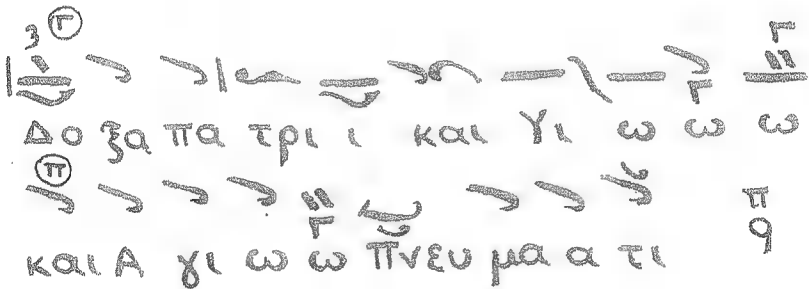 Δο ξα πα τρι ι και Υι ω ω ω
και Α γι ω ω πνευ μα α τι